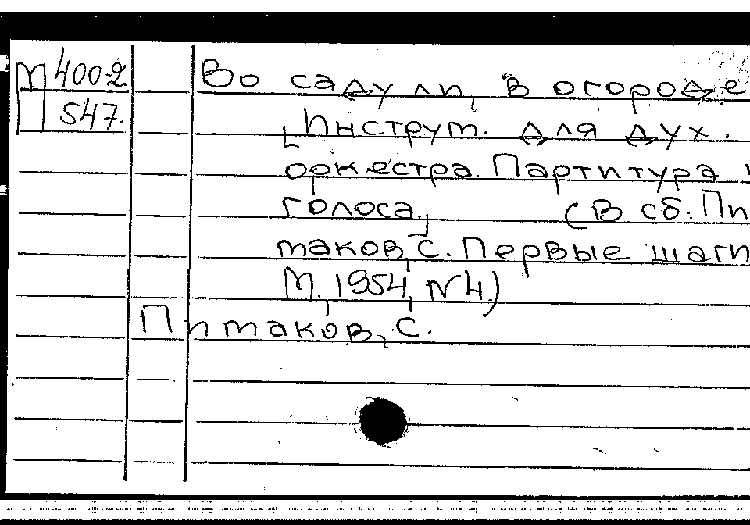 М 400-2
547.
Во саду ли, в огороде
[Инструм. для дух.
оркестра. Партитура и
голоса] (В сб: Пи
таков, С. Первые шаги
М., 1954, №4.)
Питаков, С.